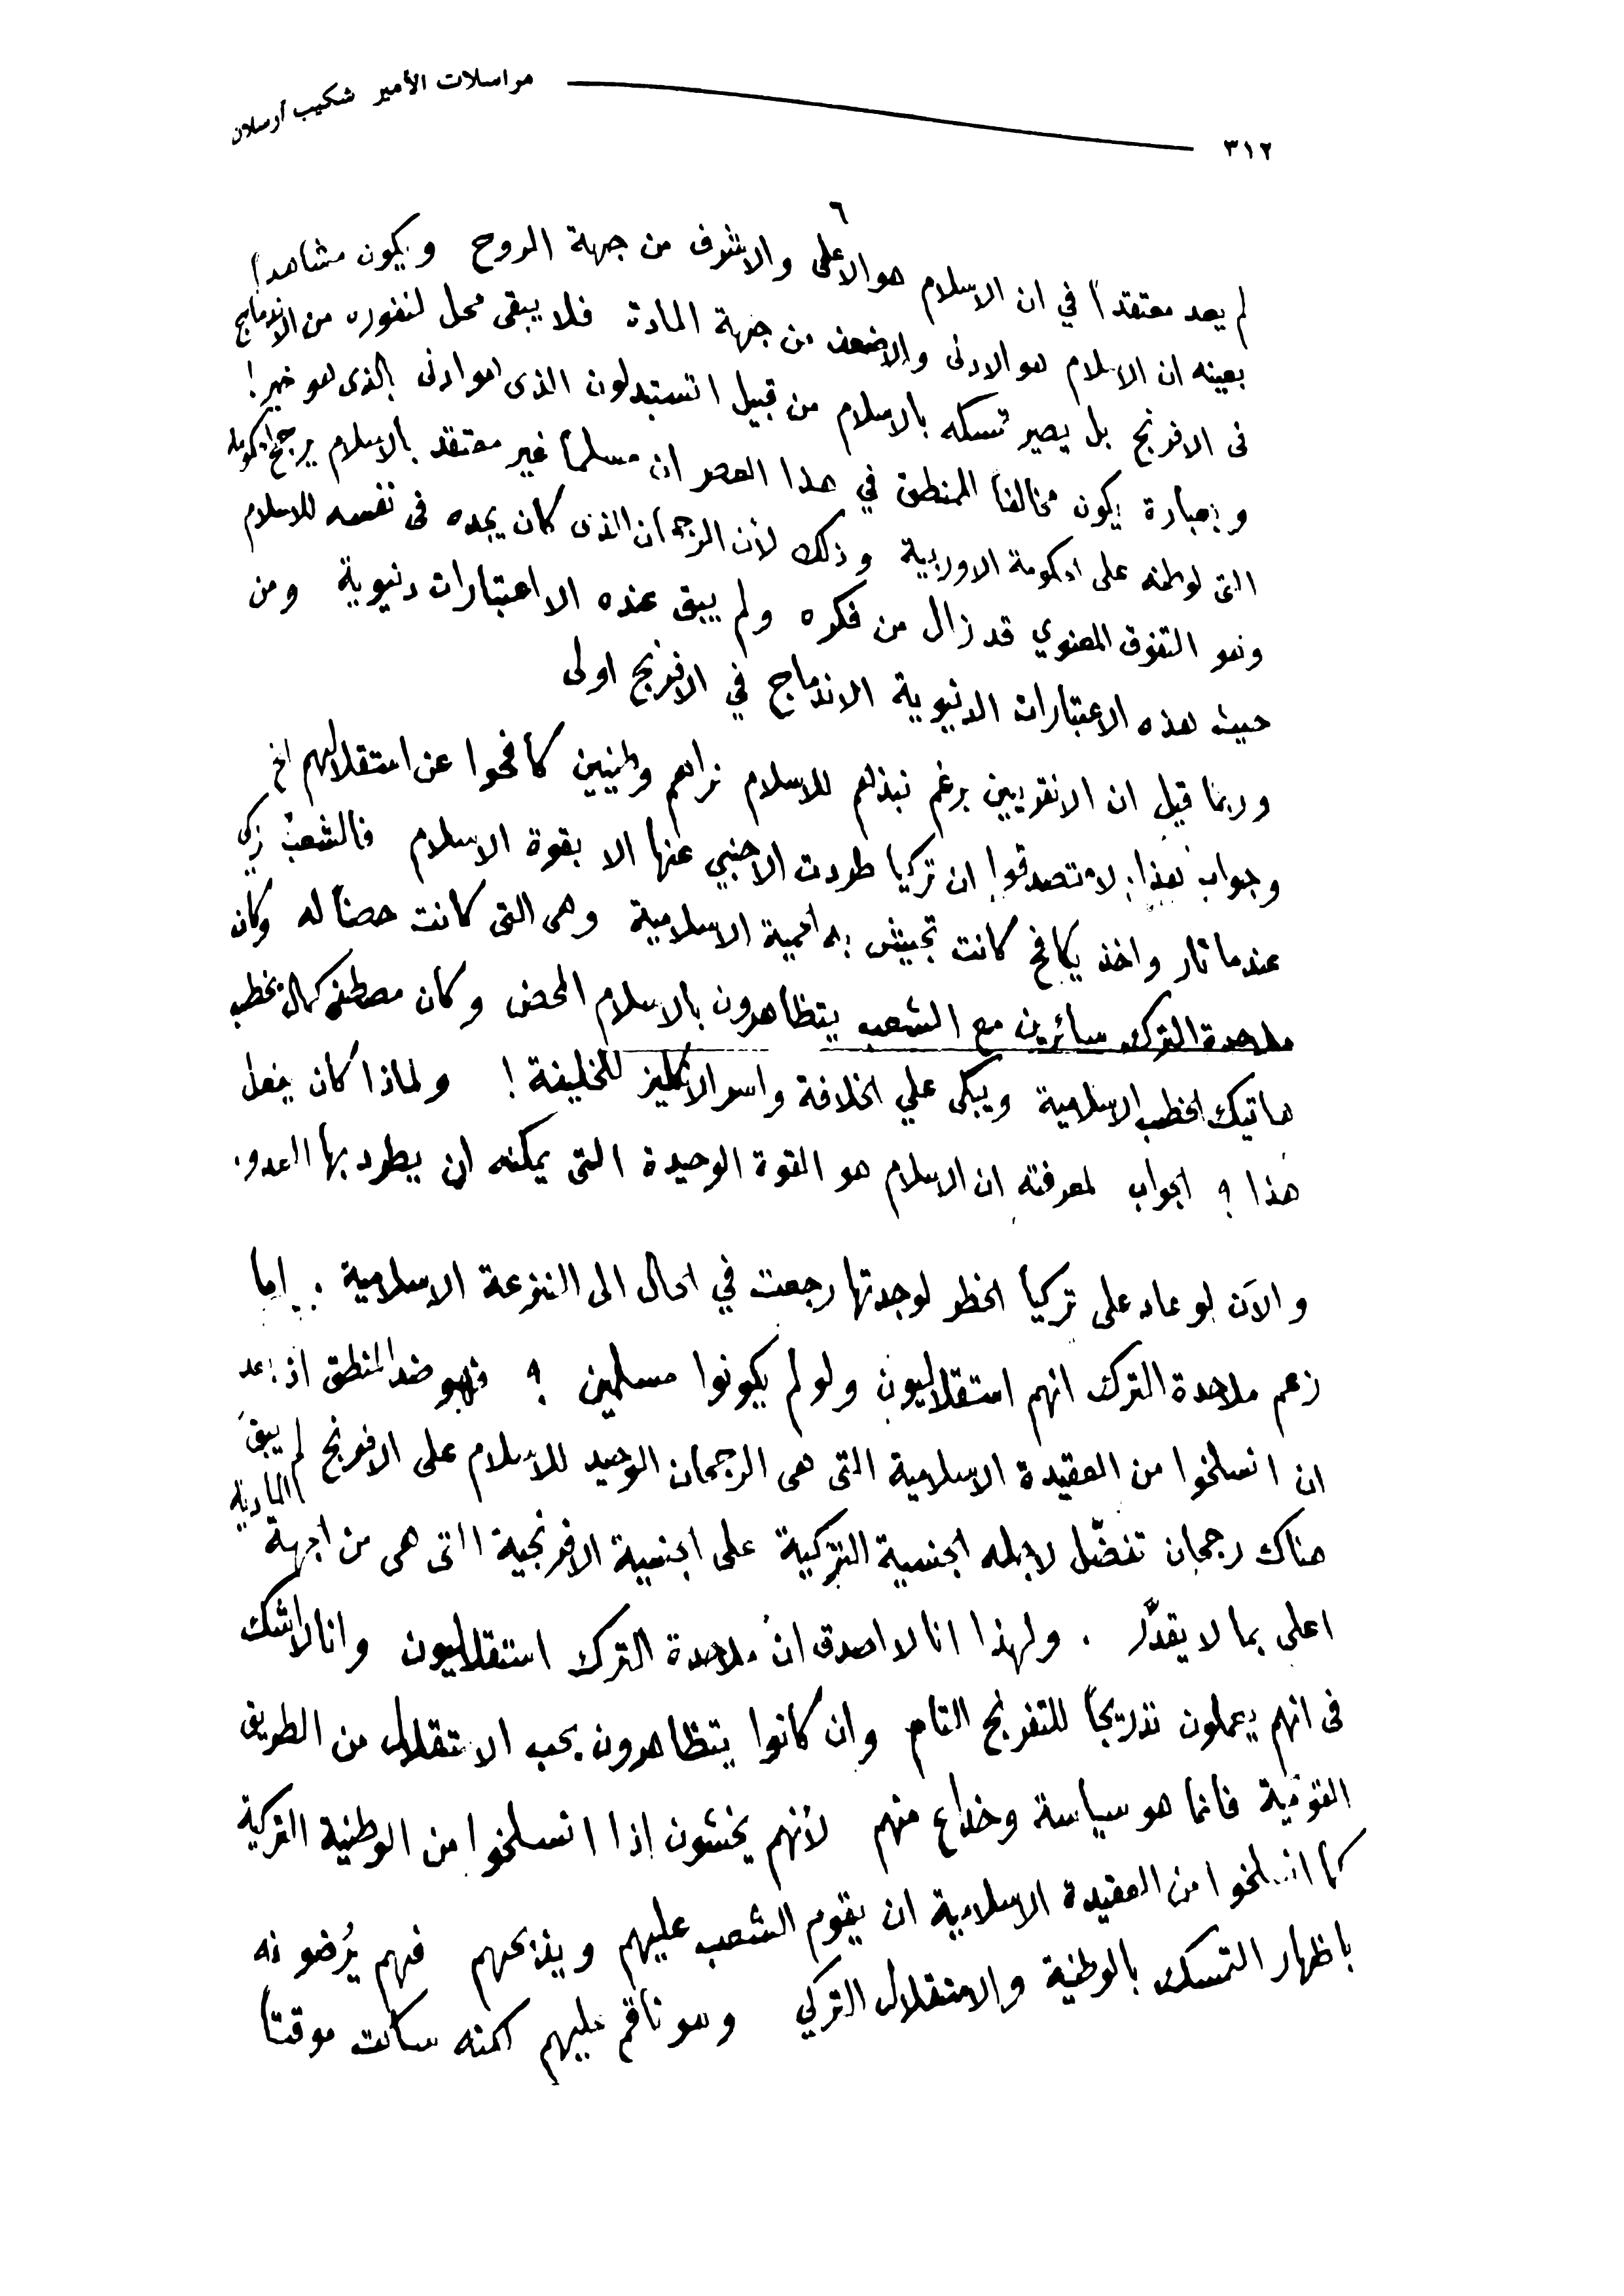 مراسلات الأمير شكيب أرسلان
٣١٢
٦
لم يعد معتقداً في ان الاسلام هو الاعلى والاشرف من جهة الروح ويكون مشاهداً
بعينه ان الاسلام هو الادنى والاضعف من جهة المادة فلا يبقى محل لنفوره من الاندماج
فى الافرنج بل يصير تمسكه بالاسلام من قبيل اتستبدلون الذى هو ادنى بالذى هو خير!
وبعبارة يكون مخالفاً للمنطق في هذا العصر ان مسلماً غير معتقد بالاسلام يرجح الحكومة
التى لوطنه على الحكومة الاوربية وذلك لأن الرجحان الذى كان يجده فى نفسه للاسلام
وهو التفوق المعنوي قد زال من فكره ولم يبق عنده الا اعتبارات دنيوية ومن
حيث هذه الاعتبارات الدنيوية الاندماج في الافرنج اولى
وربما قيل ان الانقريين برغم نبذهم للاسلام نراهم وطنيين كافحوا عن استقلالهم الخ
وجواب هذا: لا تصدقوا ان تركيا طردت الاجنبي عنها الا بقوة الاسلام فالشعب التركي
عندما ثار واخذ يكافح كانت تجيش به الحمية الاسلامية وهى التى كانت حصناً له وكان
ملاحدة الترك سائرين مع الشعب يتظاهرون بالاسلام المحض وكان مصطفى كمال يخطب
هاتيك الخطب الاسلامية ويبكى علي الخلافة واسر الانكليز للخليفة! ولماذا كان يفعل
هذا ؟ الجواب لمعرفته ان الاسلام هو القوة الوحيدة التى يمكنه ان يطرد بها العدو.
والآن لو عاد على تركيا الخطر لوجدتها رجعت في الحال الى النزعة الاسلامية . اما
زعم ملاحدة الترك انهم استقلاليون ولو لم يكونوا مسلمين ؟ فهو ضد المنطق اذ بعد
ان انسلخوا من العقيدة الاسلامية التى هى الرجحان الوحيد للاسلام على الافرنج لم يبقَ
هناك رجحان تفضّل لاجله الجنسية التركية على الجنسية الافرنجية التى هى من الجهة المادية
اعلى بما لا يقدَّر . ولهذا انا لا اصدق ان ملاحدة الترك استقلاليون وانا لا اشك
فى انهم يعملون تدريجاً للتفرنج التام وان كانوا يتظاهرون بحب الاستقلال من الطريق
القومية فانما هو سياسة وخداع منهم لأنهم يخشون إذا انسلخوا من الوطنية التركية
كما انسلخوا من العقيدة الاسلامية ان يقوم الشعب عليهم ويذبحهم فهم يُرضونه
باظهار التمسك بالوطنية والاستقلال التركي وهو ناقم عليهم لكنه ساكت موقتاً